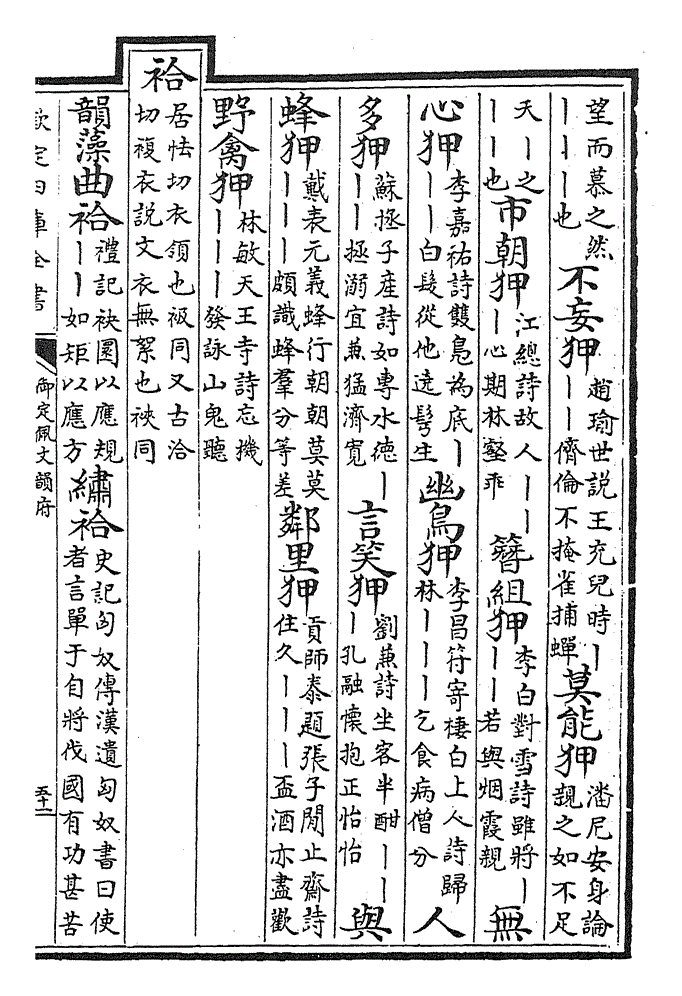 望而慕之然｜｜｜｜也不妄狎趙瑜世說王充兒時｜｜｜儕倫不掩雀捕蟬莫能狎潘尼安身論親之如不足
天｜之｜｜也市朝狎江總詩故人｜｜｜心期林壑乖簪組狎李白對雪詩雖將｜｜｜若與烟霞親無
心狎李嘉祐詩雙鳧為底｜｜｜白髮從他遶鬢生幽鳥狎李昌符寄棲白上人詩歸林｜｜｜乞食病僧分人
多狎蘇拯子產詩如專水德｜｜｜拯溺宜兼猛濟寬言笑狎劉兼詩坐客半酣｜｜｜孔融懷抱正怡怡與
蜂狎戴表元義蜂行朝朝莫莫｜｜｜頗識蜂羣分等差鄰里狎貢師泰題張子閒止齋詩住久｜｜｜盃酒亦盡歡
野禽狎林敏天王寺詩忘機｜｜｜發詠山鬼聽
袷居怯切衣領也衱同又古洽切複衣說文衣無絮也裌同
韻藻曲袷禮記袂圜以應規｜｜如矩以應方繡袷史記匈奴傳漢遺匈奴書曰使者言單于自將伐國有功甚苦
欽定四庫全書
御定佩文韻府